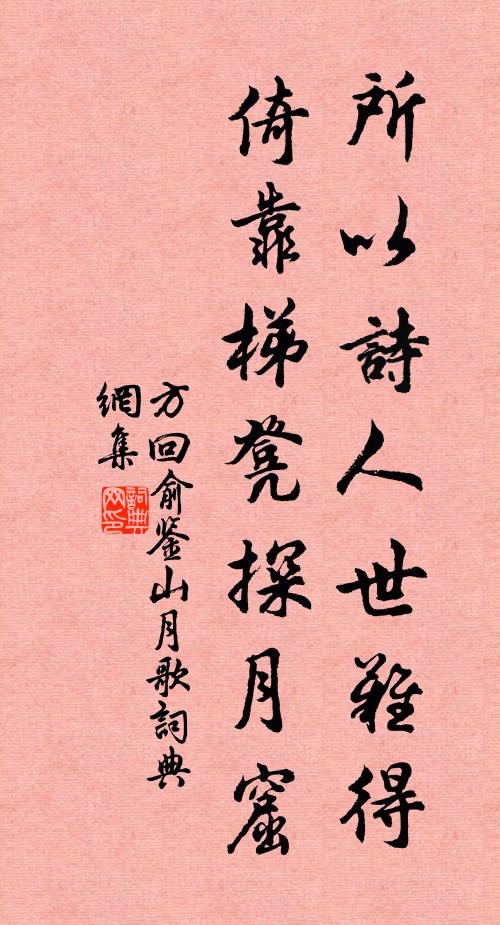 所以詩人世難得
倚靠梯凳探月窟
方回俞鉴山月歌詞典
網集
詞典
网印